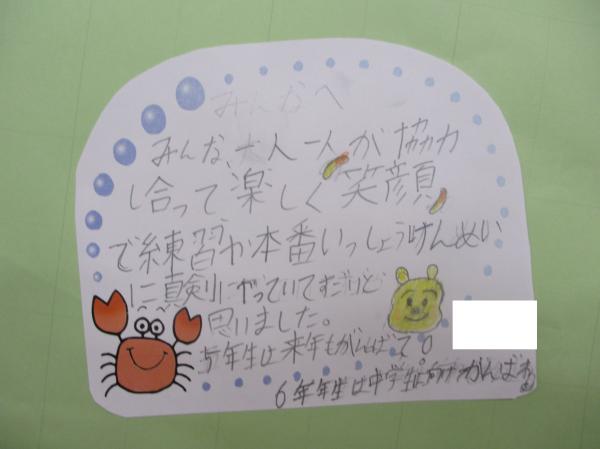 みんなへ
みんな、一人一人が協力
し合って楽しく笑顔
で練習か本番いっしょうけんめい
に真剣にやっていてすごいと
思いました。
5年生は来年もがんばって。
6年年生は中学生に向けてがんばれ